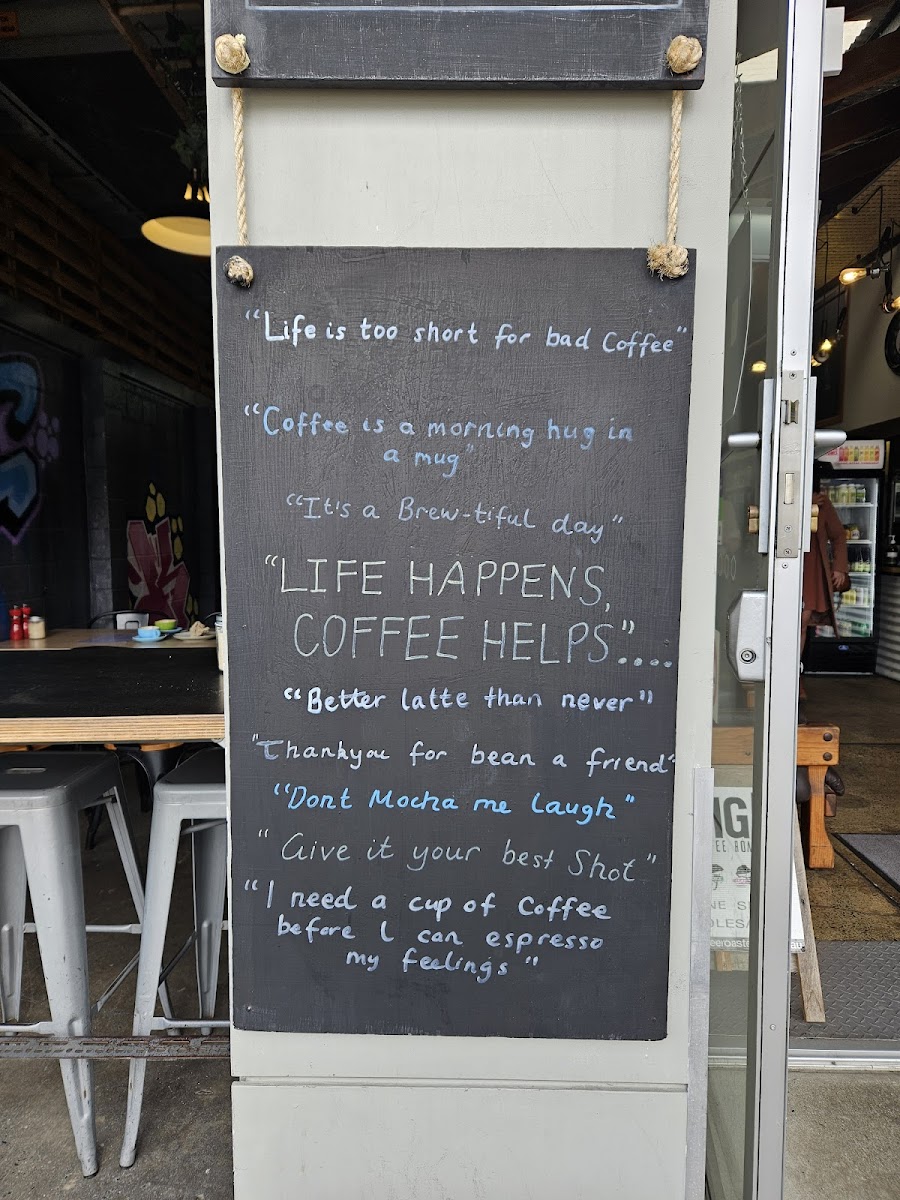 “Life is too short for bad Coffee”
“Coffee is a morning hug in
a mug”
“It's a Brew-tiful day”
“LIFE HAPPENS,
COFFEE HELPS”....
“Better latte than never”
“Thankyou for bean a friend”
“Dont Mocha me laugh”
“Give it your best Shot”
“I need a cup of Coffee
before I can espresso
my feelings”